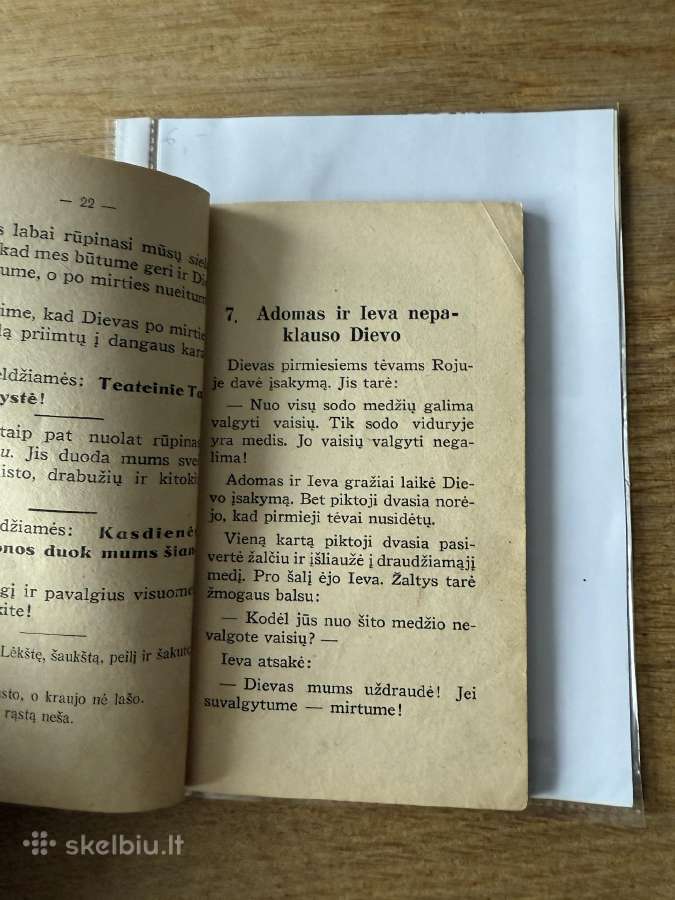 — 22 —
s labai rūpinasi mūsų
kad mes būtume geri ir
tume, o po mirties
ime, kad Dievas po
lą priimtų į dangaus
eldžiamės: Teateinie
ystė!
taip pat nuolat
u. Jis duoda mums
isto, drabužių ir
džiamės: Kasdienė
onos duok mums šian
gį ir pavalgius
kite!
Lėkštę, šaukštą, peilį ir
sto, o kraujo nė lašo.
rąstą neša.
7. Adomas ir Ieva nepa-
klauso Dievo
Dievas pirmiesiems tėvams Roju-
je davė įsakymą. Jis tarė:
— Nuo visų sodo medžių galima
valgyti vaisių. Tik sodo viduryje
yra medis. Jo vaisių valgyti nega-
lima!
Adomas ir Ieva gražiai laikė Die-
vo įsakymą. Bet piktoji dvasia norė-
jo, kad pirmieji tėvai nusidėtų.
Vieną kartą piktoji dvasia pasi-
vertė žalčiu ir įšliaužė į draudžiamąjį
medį. Pro šalį ėjo Ieva. Žaltys tarė
žmogaus balsu:
— Kodėl jūs nuo šito medžio ne-
valgote vaisių? —
Ieva atsakė:
— Dievas mums uždraudė! Jei
suvalgytume — mirtume!
skelbiu.lt